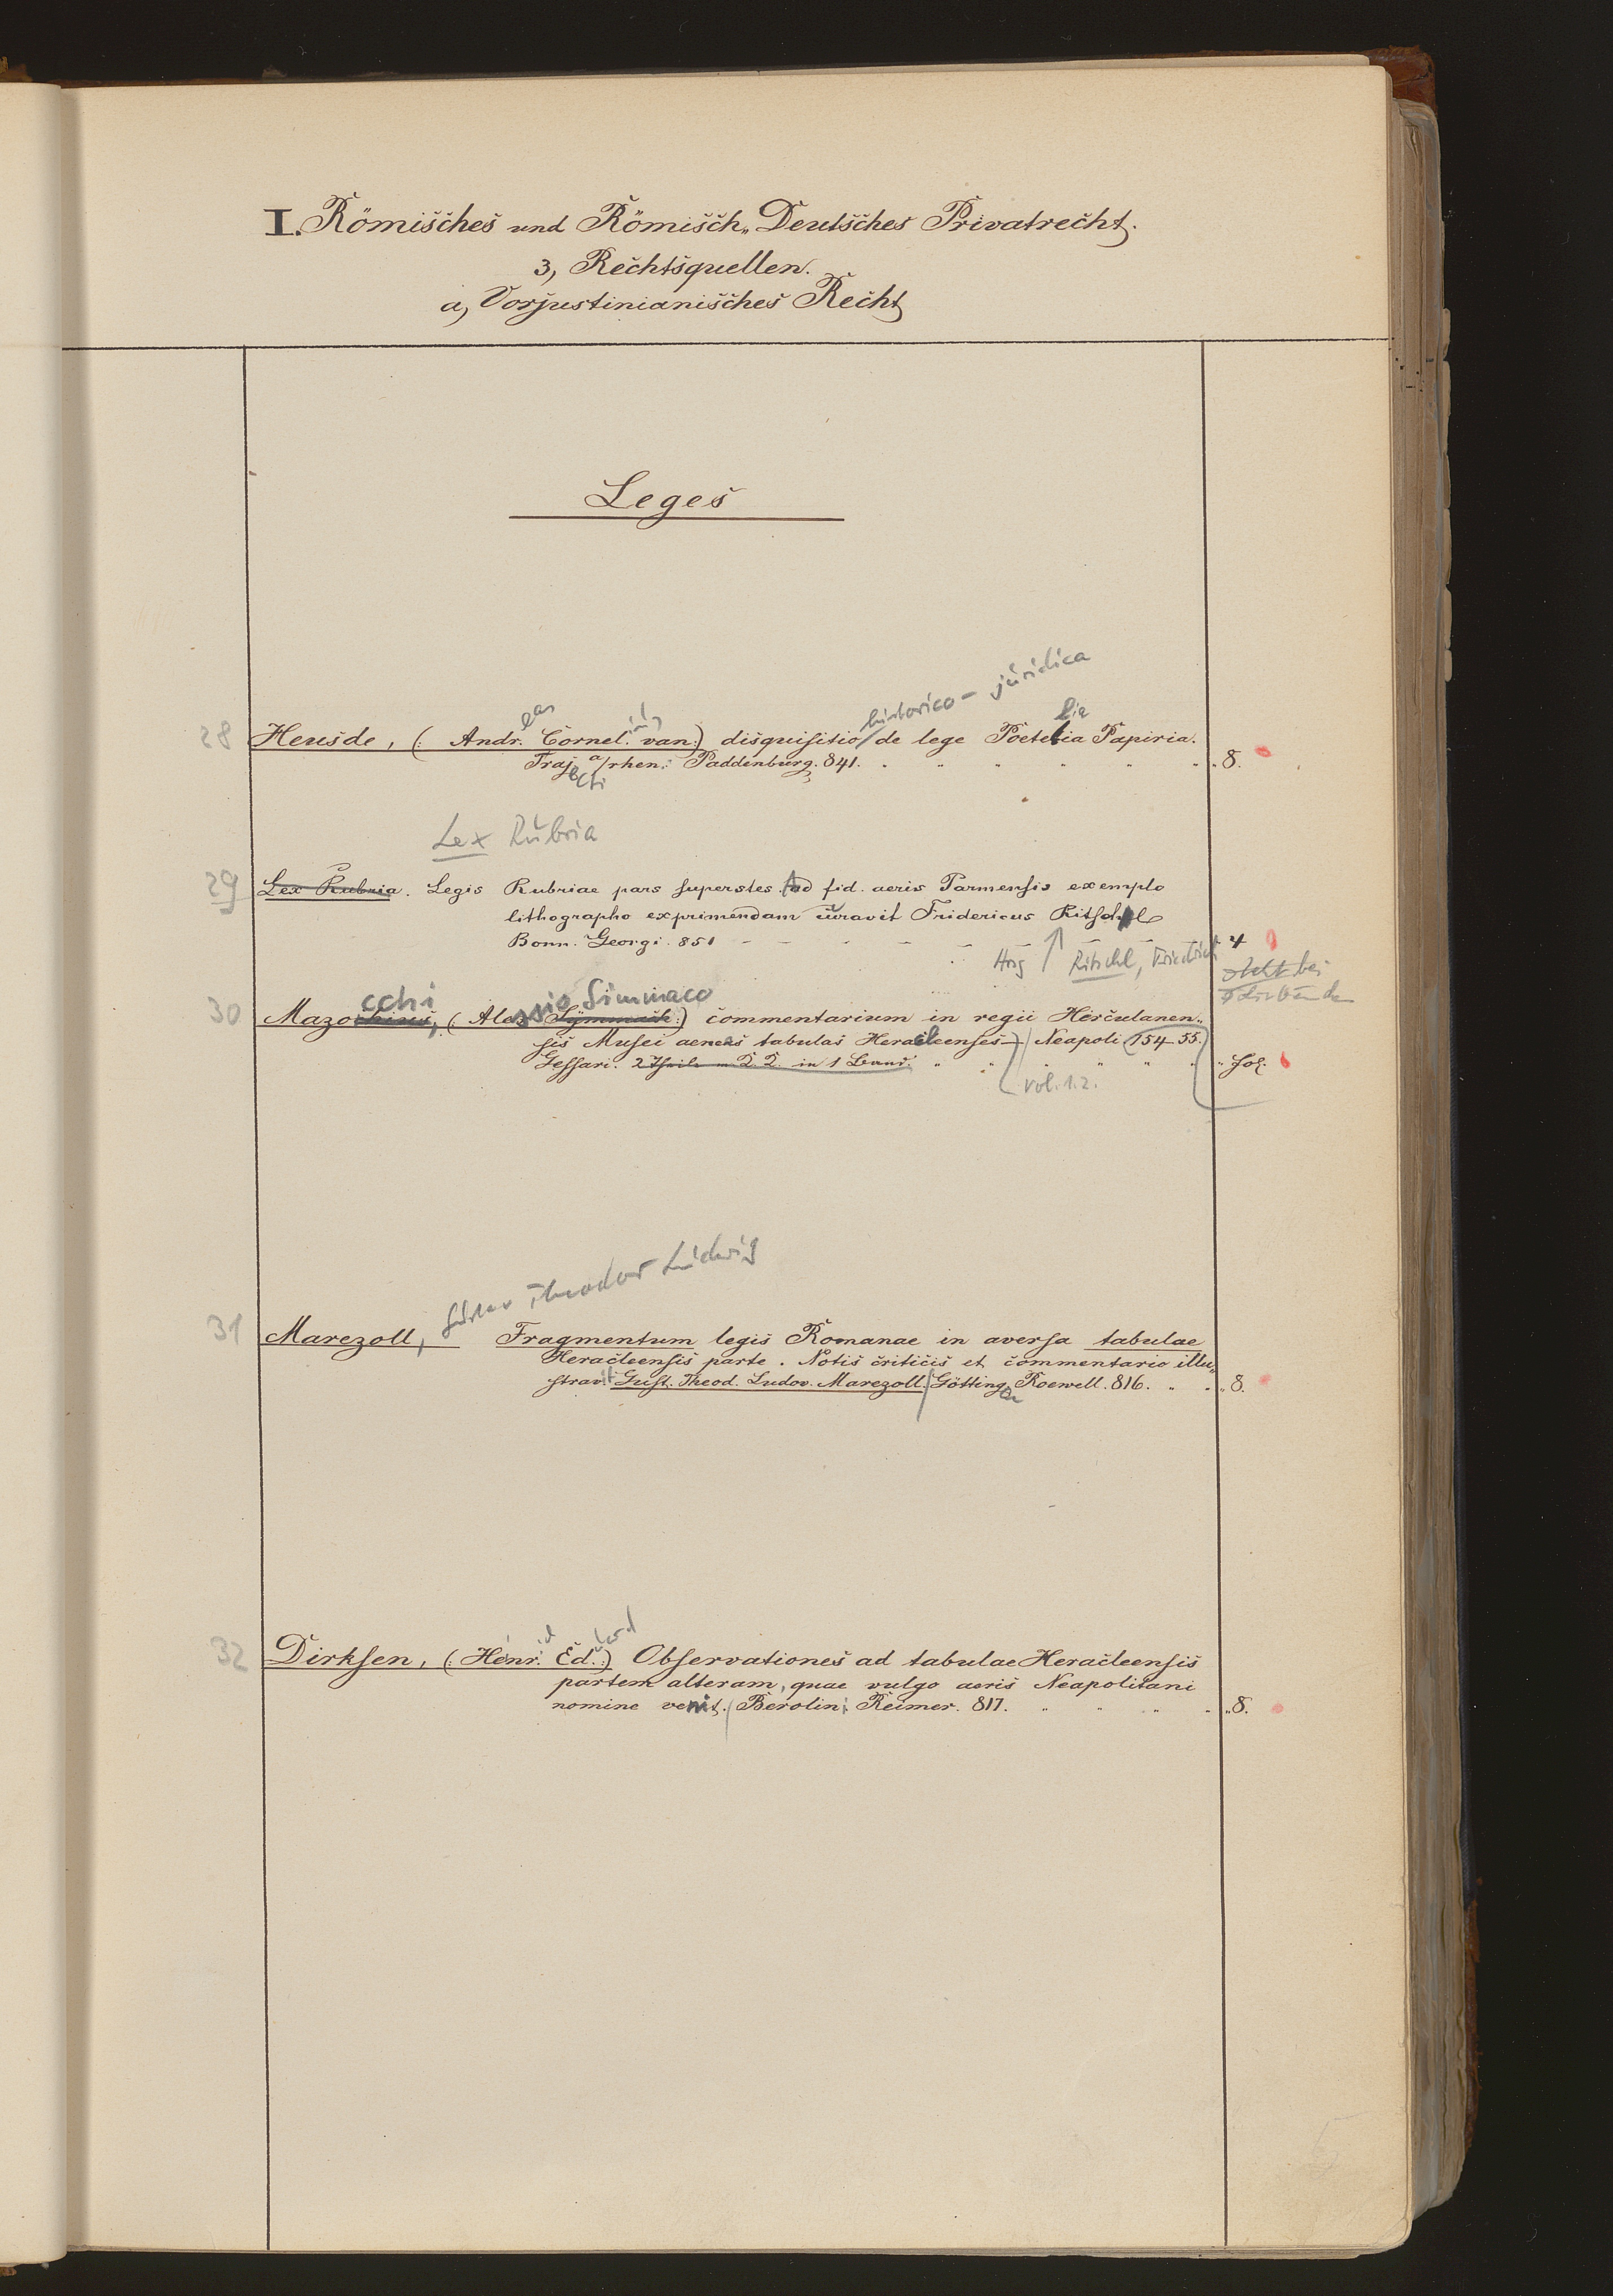 I. Römisches und Römisch„Deutsches Privatrecht.
3, Rechtsquellen.
a, Vorjustinianisches Recht
Leges
eas ius historico-juridica lia
28 Heusde, (: Andr. Cornel. van:) disquisitio de lege Poetelia Papiria.
Traj. a/rhen. Paddenburg. 841. 8.
ecti
Lex Rubria
29 Lex Rubria. Legis Rubriae pars superstes. Ad fid. aeris Parmensis exemplo
lithographo exprimendam curavit Fridericus Ritschl
Bonn. Georgi. 851 4
Hrsg ↑ Ritschl, Friedrich
steht bei
cchi ssio Simmaco
30 Mazochius, (Alex. Symmach:) commentarium in regii Herculanen„
sis Musei aeneas tabulas Heracleenses Neapoli 154–55.
Gessari. 2 Theile in 1 Band. fol.
vol. 1.2.
Gustav Theodor Ludwig
31 Marezoll, Fragmentum legis Romanae in aversa tabulae
Heracleensis parte. Notis criticis et commentario illu„
stravit Gust. Theod. Ludov. Marezoll. Götting. Roewell. 816. 8.
ae
id uard
32 Dirksen, (: Henr. Ed.:) Observationes ad tabulae Heracleensis
partem alteram, quae vulgo aeris Neapolitani
nomine venit. Berolini Reimer. 817. 8.